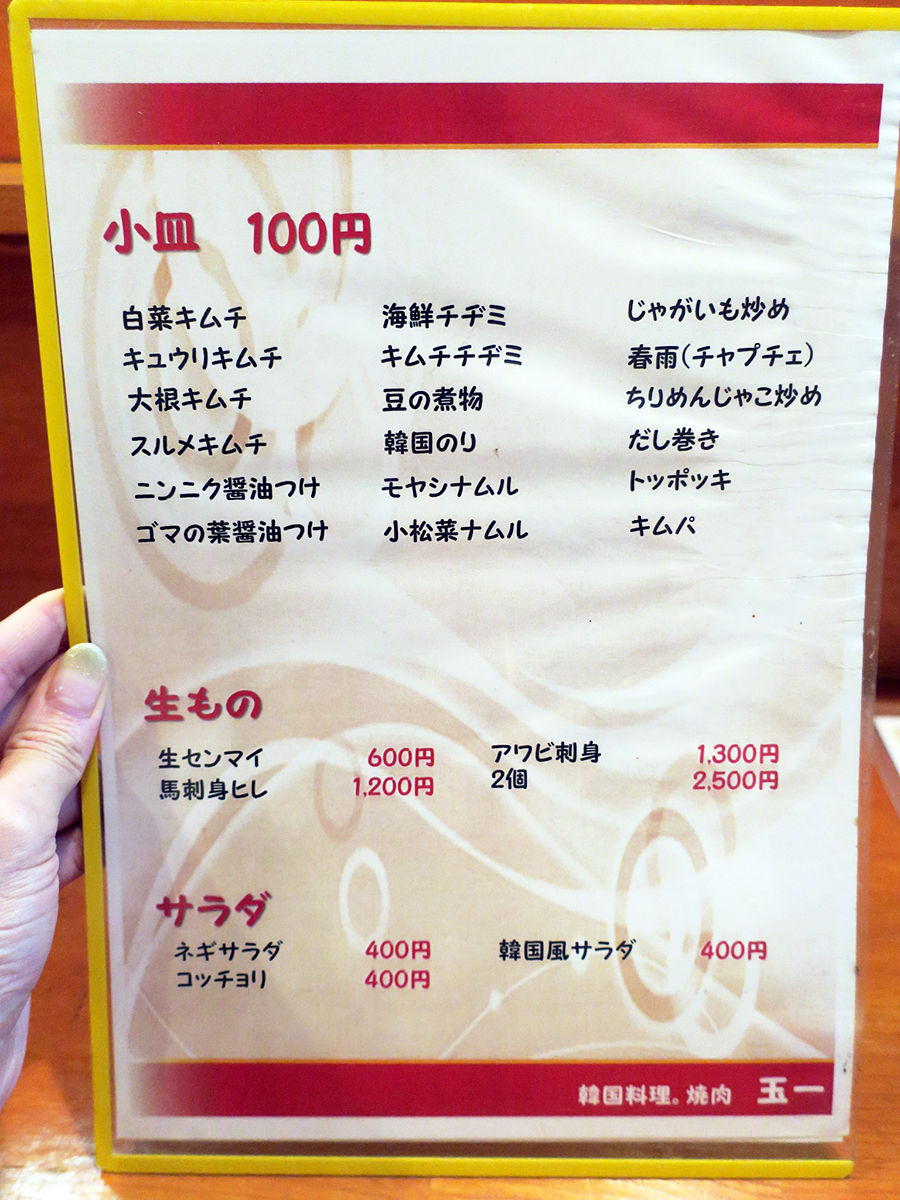 小皿 100円
白菜キムチ 海鮮チヂミ じゃがいも炒め
キュウリキムチ キムチチヂミ 春雨(チャプチェ)
大根キムチ 豆の煮物 ちりめんじゃこ炒め
スルメキムチ 韓国のり だし巻き
ニンニク醤油つけ モヤシナムル トッポッキ
ゴマの葉醤油つけ 小松菜ナムル キムパ
生もの
生センマイ 600円 アワビ刺身 1,300円
馬刺身ヒレ 1,200円 2個 2,500円
サラダ
ネギサラダ 400円 韓国風サラダ 400円
コッチョリ 400円
韓国料理。焼肉 玉一